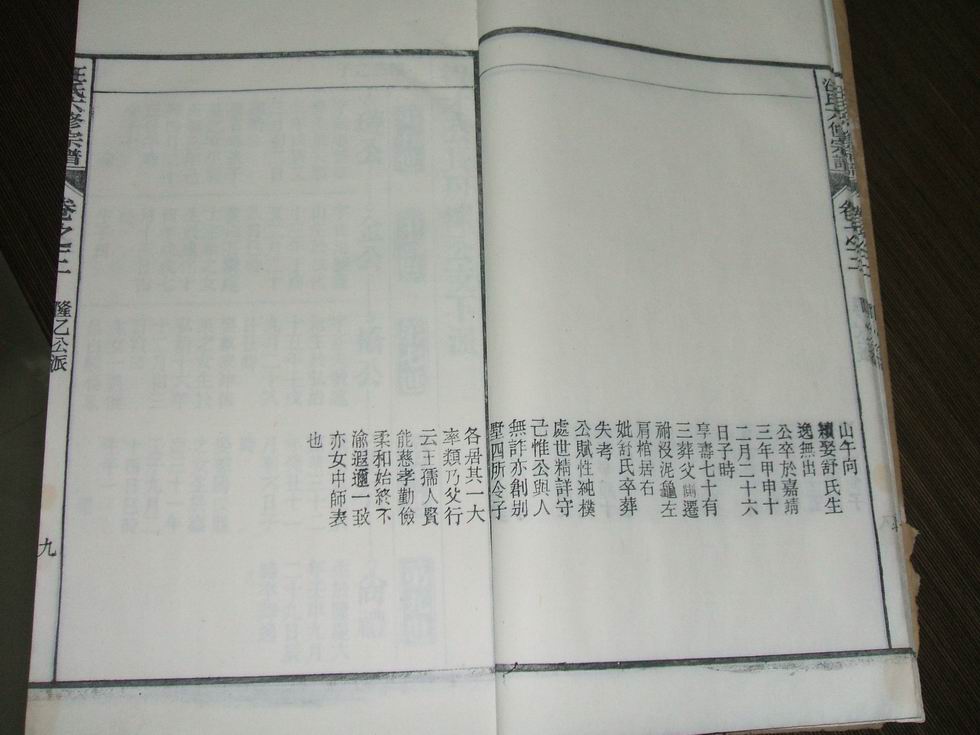 山午向
穎娶舒氏生
逸無出
公卒於嘉靖
三年甲申十
二月二十六
日子時
享壽七十有
三葬父塋遷
祔沒泥龜左
肩棺居右
妣舒氏卒葬
失考
公賦性純樸
處世精詳守
己惟公與人
無詐亦創别
墅四所令子
各居其一大
率類乃父行
云王孺人賢
能慈孝勤儉
柔和始終不
渝遐邇一致
亦女中師表
也
汪氏六修宗譜
卷之二
隆乙公派
九